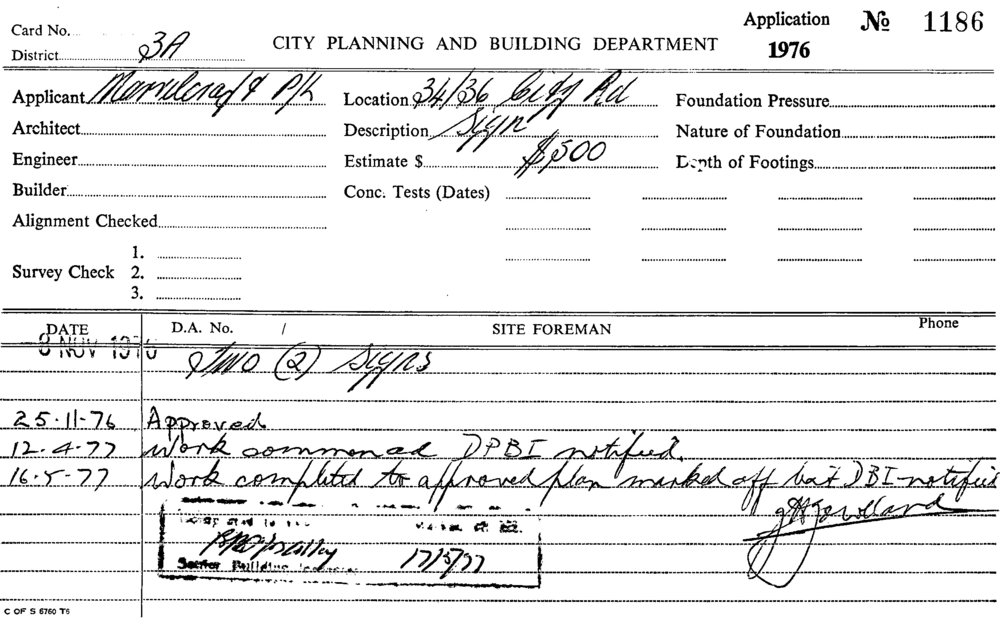 Application № 1186
Card No.
District 3A
CITY PLANNING AND BUILDING DEPARTMENT
1976
Applicant Marvelcraft P/L
Location 34/36 City Rd
Foundation Pressure
Architect
Description Sign
Nature of Foundation
Engineer
Estimate $ $500
Depth of Footings
Builder
Conc. Tests (Dates)
Alignment Checked
Survey Check
1.
2.
3.
DATE D.A. No. / SITE FOREMAN Phone
8 NOV 1976
Two (2) Signs
25.11.76 Approved
12.4.77 Work commenced DPBI notified.
16.5.77 Work completed to approved plan marked off DBI notified
17/5/77
Senior Building
C OF S 6760 T6